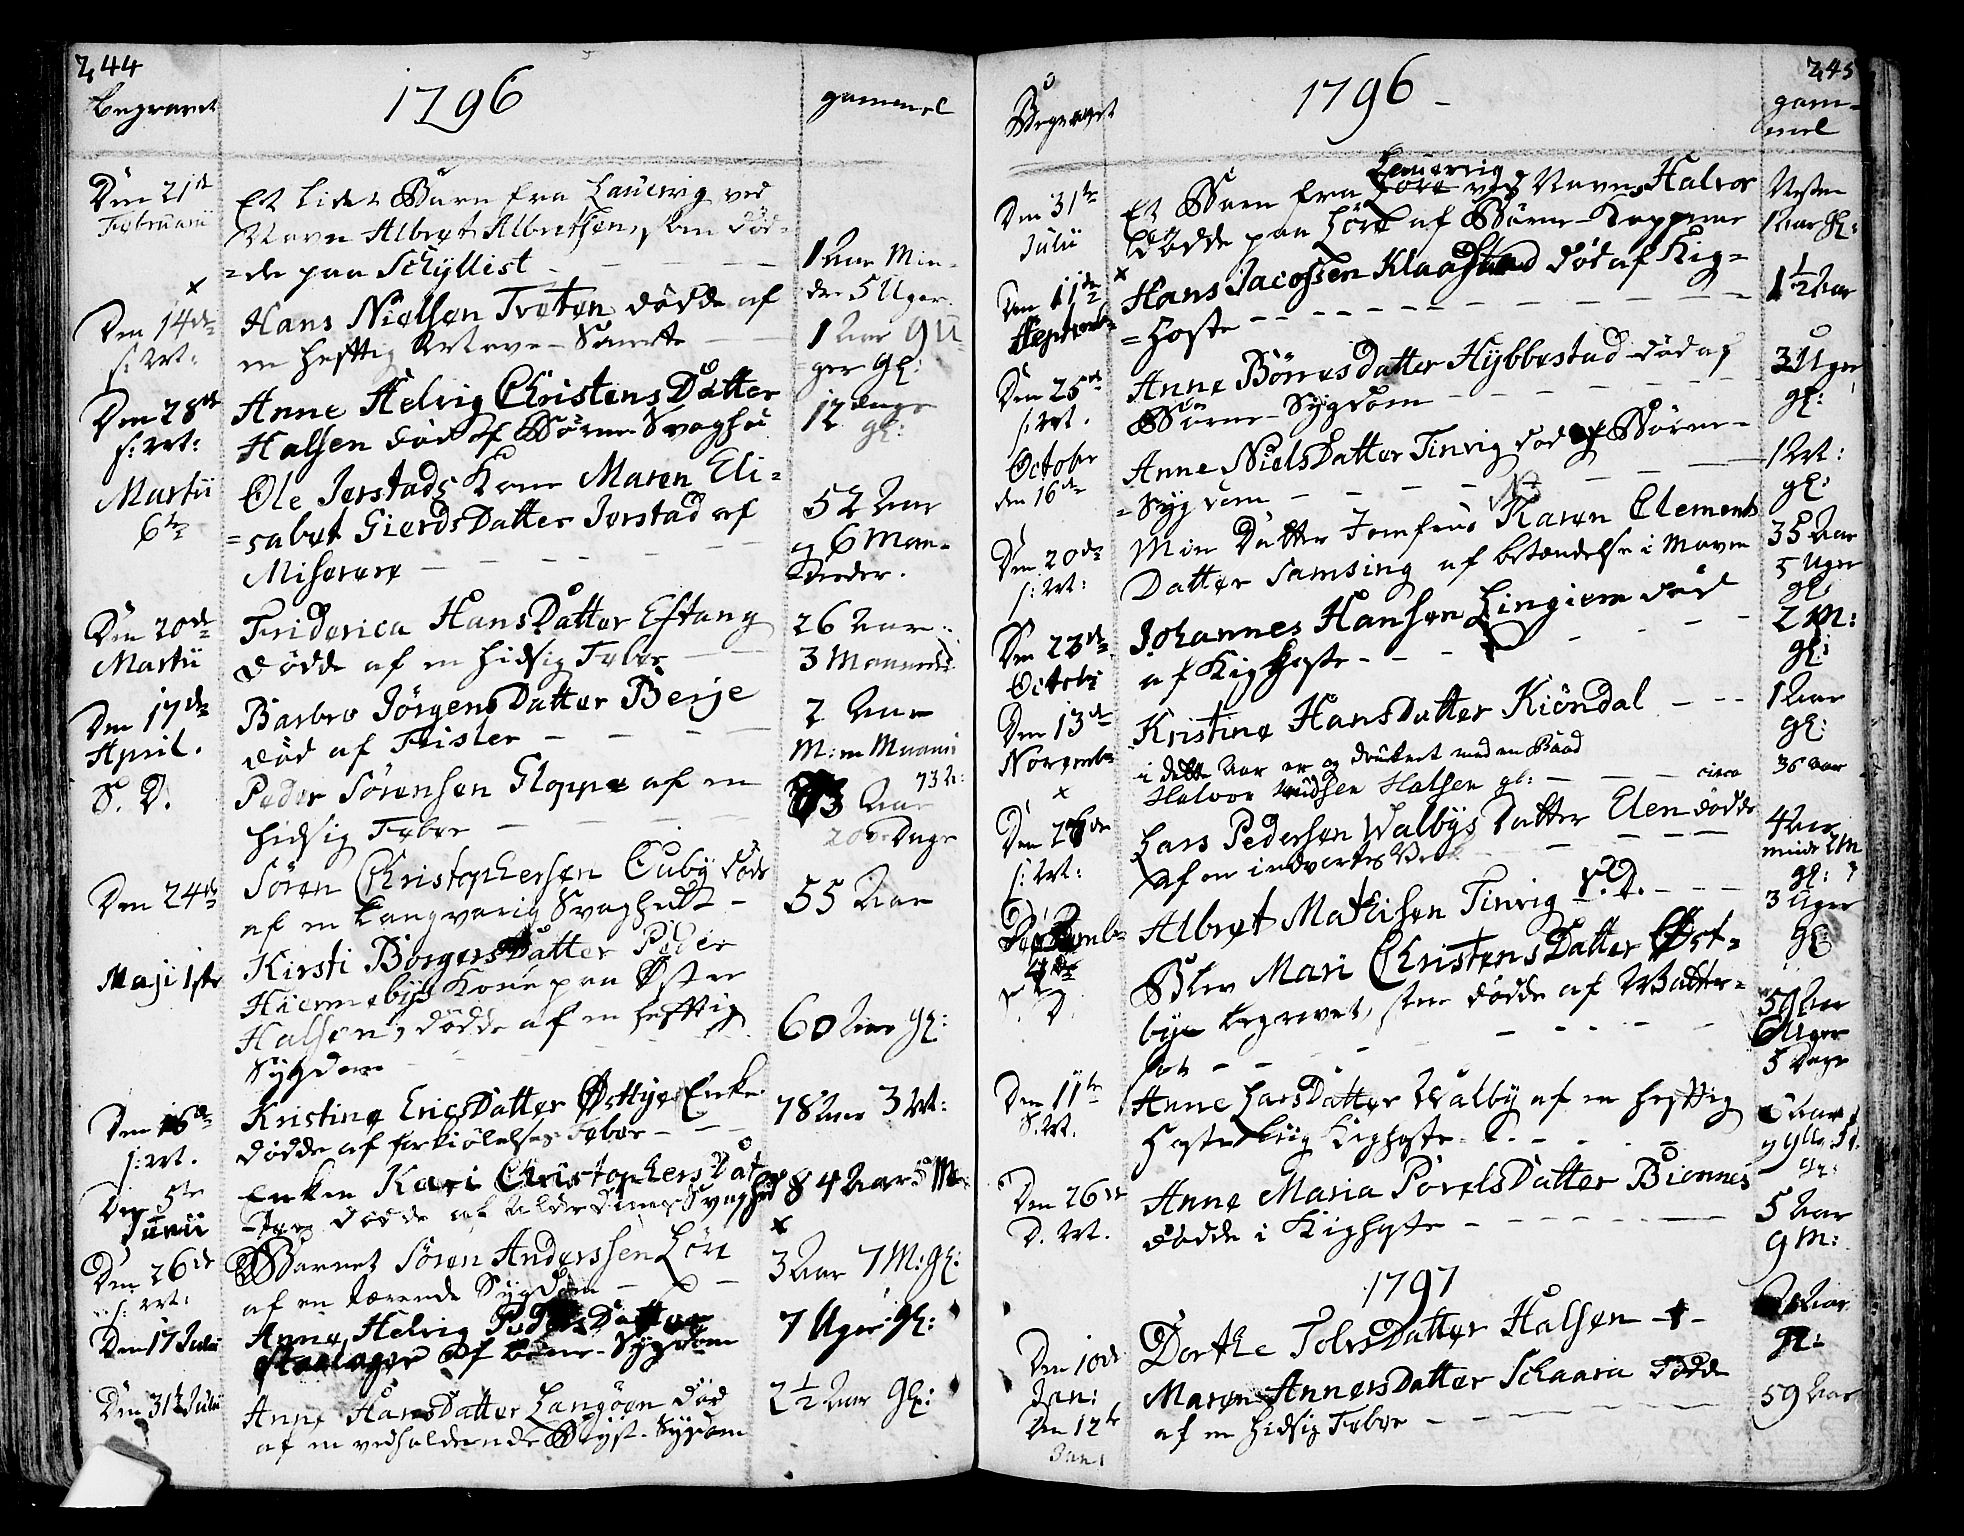 244
begravet 1796 gammel
Den 21de Et lidet Barn fra Laurvig ved
Februarii Navn Albret Albretsen, som død=
=de paa Schyllist — 1 Aar Min-
dre 5 Uger.
Den 14de Hans Nielsen Treten døde af 1 Aar 9 U=
s: M: en hefftig Mave-Smerte — ger gl:
Den 28de Anne Helvig Christens Datter 12 Dage
s: M: Halsen død af Børne Svaghed gl:
Martii Ole Jerstads Kone Maren Eli= 52 Aar
6te =sabet Gierds Datter Jerstad af og 6 Maa-
Miserere — neder.
Den 20de Friderica Hans Datter Eftang 26 Aar
Martii døde af en hidsig Feber — 3 Maaneder
Den 17de Barbro Jørgens Datter Berje 2 Aar
April. død af Frisler — M: en Maaned
S. D. Peder Sørensen Gloppe af en 73 Aar
hidsig Feber — 20 Dage
Den 24de Søren Christophersen Ouby døde
af en langvarig Svaghed — 55 Aar
Maji 1ste Kirsti Børgers Datter Peder
Hiemmebyes Kone paa Østre
Halsen, døde af en hefftig 60 Aar gl:
Sygdom
Den 16de Kristine Erics Datter Østbyes Enke 78 Aar 3 M:
s: M. døde af forkiølelses Feber —
Den 5te Enken Kari Christophers Dat 84 Aar 5 M:
Junii =ter døde af Alderdoms Svaghed
Den 26de Barnet Søren Anderssen Løve 3 Aar 7 M: gl:
s: M: af en tærende Sygdom —
Den 17 Julii Anne Helvig Peders Datter 7 Uger gl:
af Børne-Sygdom
Den 31te Julii Anne Hans Datter Langøen død 2 1/2 Aar gl:
af en vedholdende Bryst-Sygdom
245
Begravet 1796 — gam=
mel
Laurvig
Den 31te Et Barn fra ved Navn Halvor Nesten
Julii Døde paa Løve af Børne-Koppene 1 Aar gl:
Den 11te Hans Jacobsen Klaastad død af Kig= 1 1/2 Aar
Septemb. =hoste —
Den 25de Anne Børres Datter Hybbestad død af 3 Uger
s: M. Børne-Sygdom — gl:
October Anne Niels Datter Tinvig død af Børne= 1 M:
den 16de =Sygdom — gl:
Den 20de Min Datter Jomfrue Karen Clements 35 Aar
s: M: Datter Samsing af betændelse i Maven 5 Uger
gl:
Den 23de Johannes Hansen Lingiem død 2 M:
Octobr af Kighoste — gl:
Den 13de Kristine Hans Datter Kiöndal — 1 Aar
Novemb. gl:
i dette Aar er og druknet med en Baad
Halvor Halsen gl: — circa 36 Aar
Den 26de Lars Pedersen Walbys Datter Elen døde 4 Aar
s: M: af en indvortes — mindre 2 M
gl:
Albret Mathisen Tinvig S. D. — 3 Uger
gl:
4de Blev Mari Christens Datter Øst=
S. D. bye begravet, som døde af Watter= 59 Aar
sot — 6 Uger
5 Dage
Den 11te Anne Lars Datter Walby af en hefftig
S. M. Hoste Kighoste
Den 26de Anne Maria Povels Datter Bionnes 5 Aar
D. M. døde i Kighoste — 9 M:
1797
Den 10de Dorthe Tolvs Datter Halsen — Aar
Jan: gl:
Den 12te Maren Anners Datter Schaara døde 59 Aar
Jan: af en hidsig Feber —